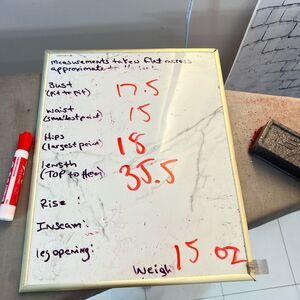 measurements taken flat across
approximate
Bust 17.5
(Pit to Pit)
waist 15
(smallest point)
Hips 18
(largest point)
length 35.5
(TOP to Hem)
Rise:
Inseam:
leg opening:
Weigh 15 oz